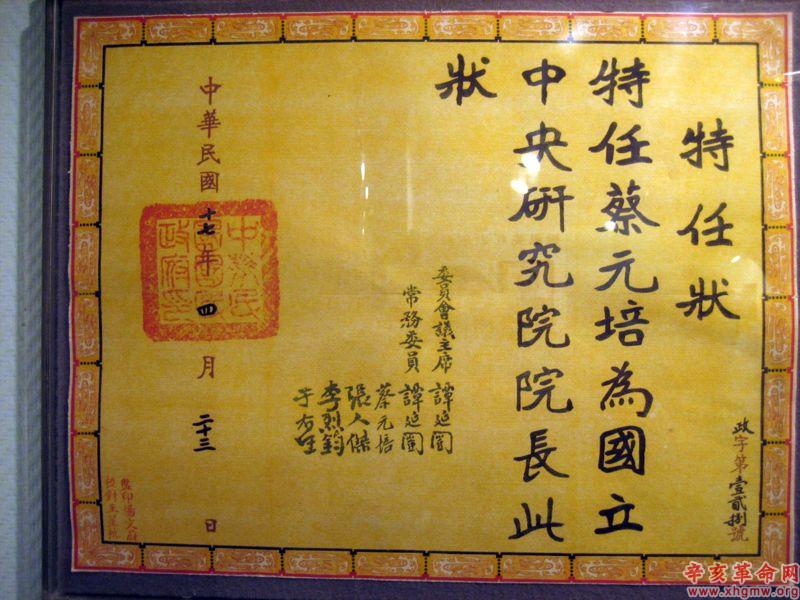 特任狀
特任蔡元培為國立
中央研究院院長此
狀
政字第壹貳捌號
委員會議主席 譚延闓
常務委員 譚延闓
蔡元培
張人傑
李烈鈞
于右任
中華民國十七年四月二十三日
辛亥革命网
www.xhgmw.org